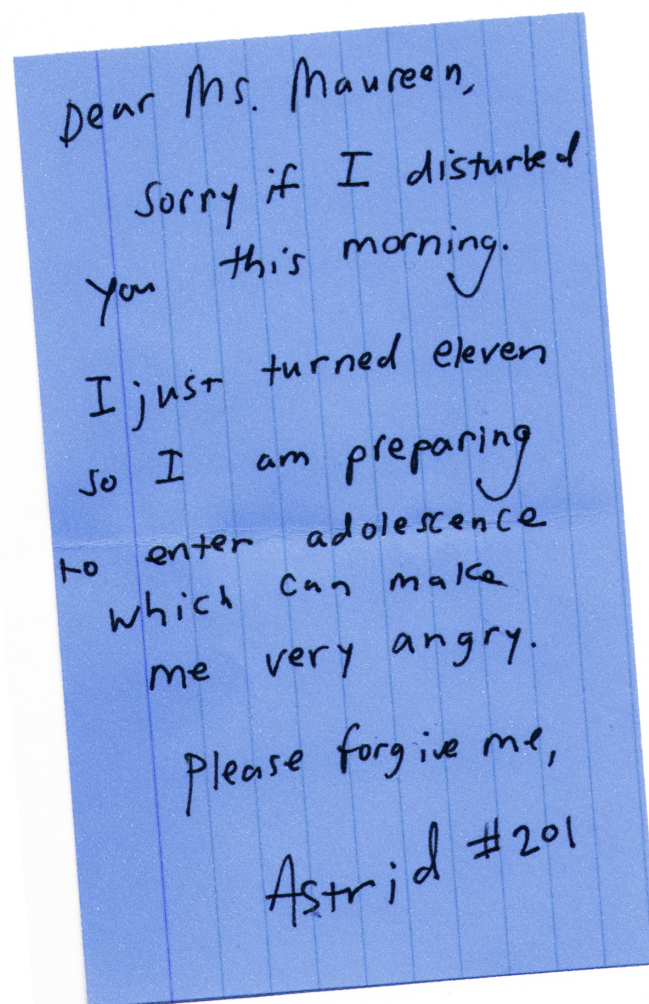 Dear Ms. Maureen,
Sorry if I disturbed
you this morning.
I just turned eleven
so I am preparing
to enter adolescence
which can make
me very angry.
Please forgive me,
Astrid #201